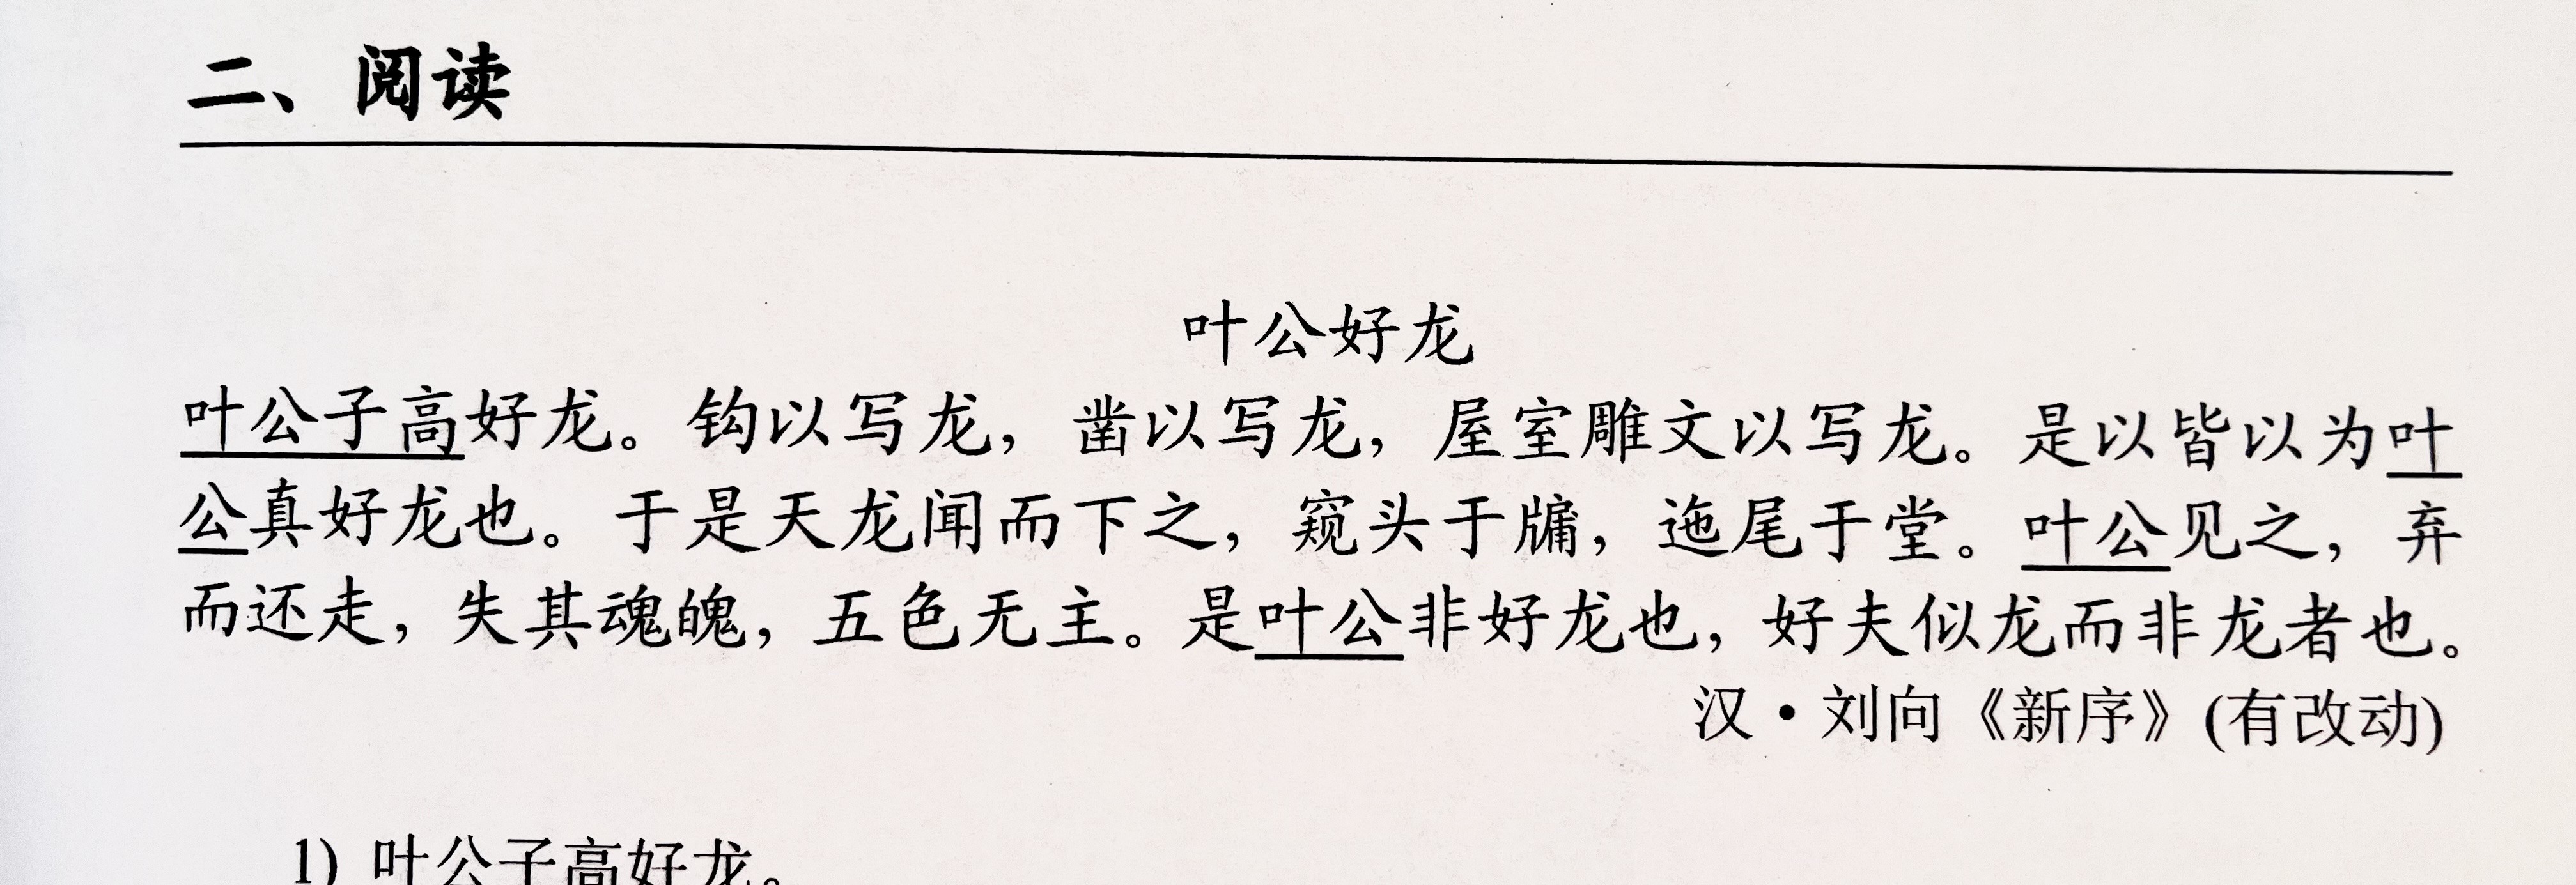 二、阅读
叶公好龙
叶公子高好龙。钩以写龙，凿以写龙，屋室雕文以写龙。是以皆以为叶
公真好龙也。于是天龙闻而下之，窥头于牖，迤尾于堂。叶公见之，弃
而还走，失其魂魄，五色无主。是叶公非好龙也，好夫似龙而非龙者也。
汉·刘向《新序》(有改动)
1) 叶公子高好龙。